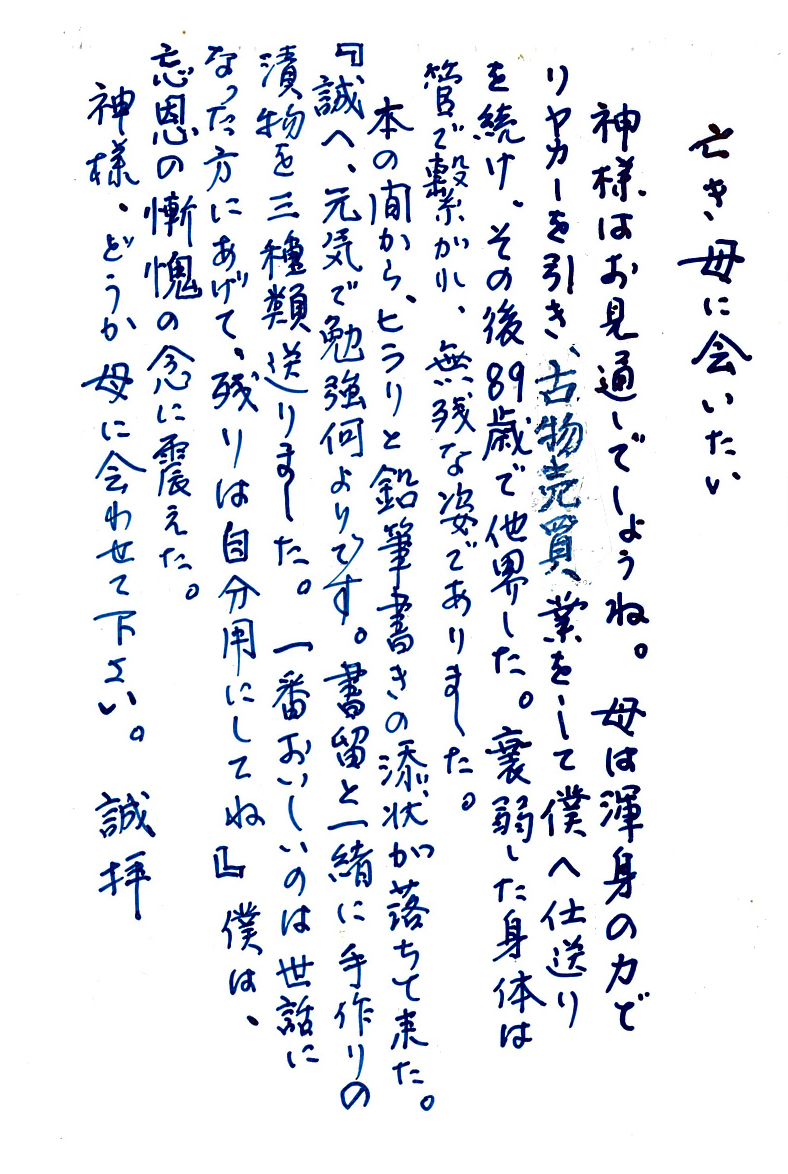 亡き母に会いたい
神様はお見通しでしょうね。母は渾身の力で
リヤカーを引き、古物売買業をして僕へ仕送り
を続け、その後89歳で他界した。衰弱した身体は
管で繋がれ、無残な姿でありました。
本の間から、ヒラリと鉛筆書きの添状が落ちて来た。
『誠へ、元気で勉強何よりです。書留と一緒に手作りの
漬物を三種類送りました。一番おいしいのは世話に
なった方にあげて、残りは自分用にしてね』僕は、
忘恩の慚愧の念に震えた。
神様、どうか母に会わせて下さい。 誠拝